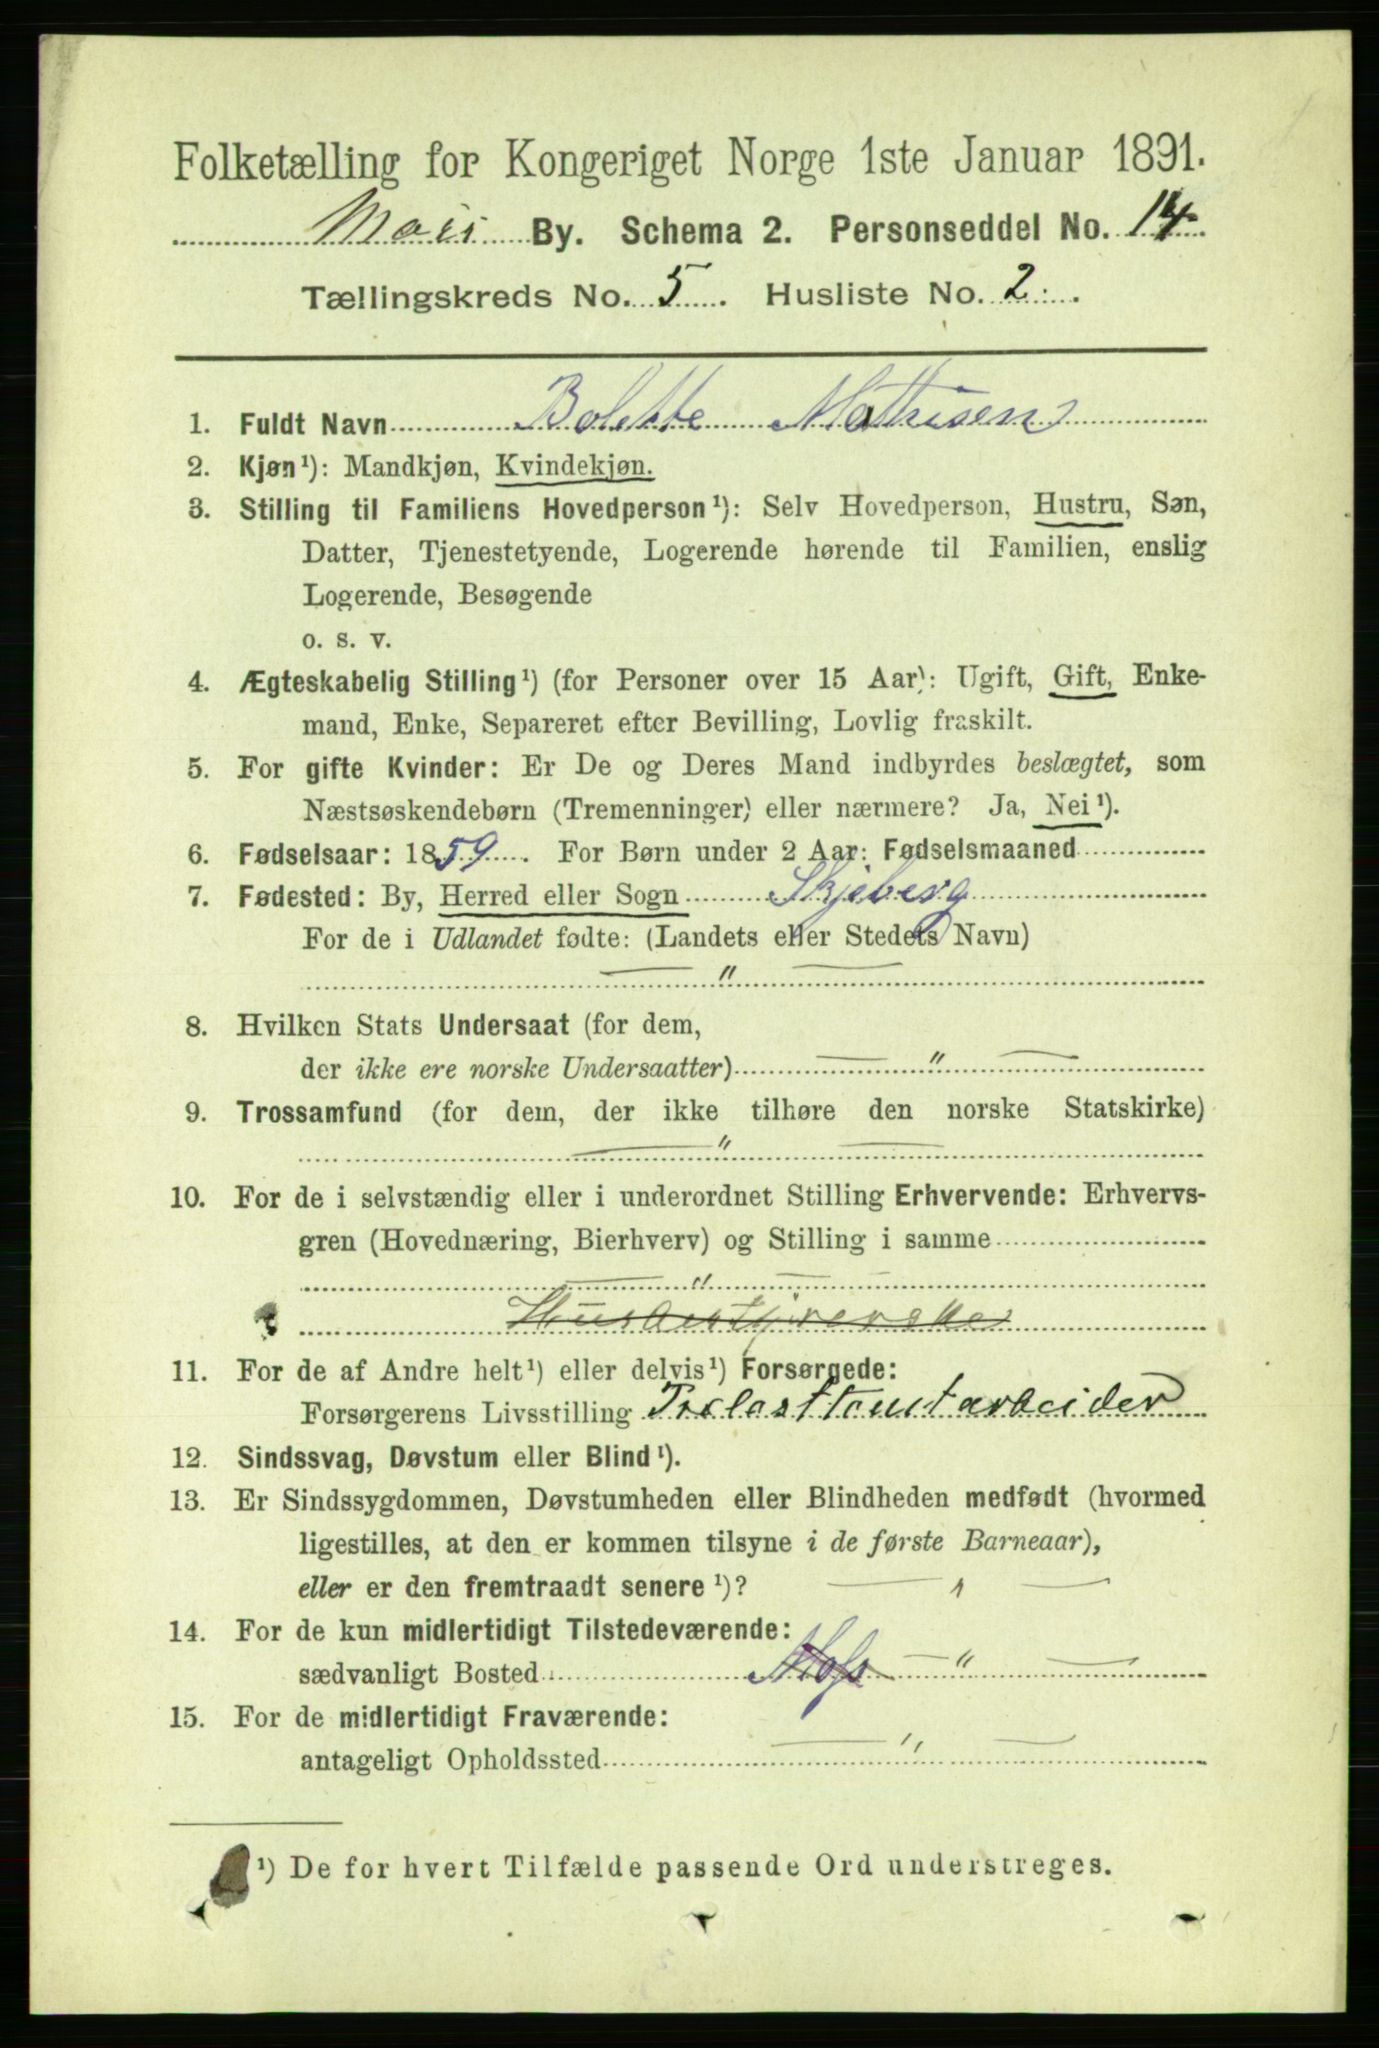 Folketælling for Kongeriget Norge 1ste Januar 1891.
Moss By. Schema 2. Personseddel No. 14
Tællingskreds No. 5. Husliste No. 2.
1. Fuldt Navn Bolette Mathisen
2. Kjøn¹): Mandkjøn, Kvindekjøn.
3. Stilling til Familiens Hovedperson¹): Selv Hovedperson, Hustru, Søn,
Datter, Tjenestetyende, Logerende hørende til Familien, enslig
Logerende, Besøgende
o. s. v.
4. Ægteskabelig Stilling¹) (for Personer over 15 Aar): Ugift, Gift, Enke-
mand, Enke, Separeret efter Bevilling, Lovlig fraskilt.
5. For gifte Kvinder: Er De og Deres Mand indbyrdes beslægtet, som
Næstsøskendebørn (Tremenninger) eller nærmere? Ja, Nei¹).
6. Fødselsaar: 1859. For Børn under 2 Aar: Fødselsmaaned
7. Fødested: By, Herred eller Sogn Skjeberg
For de i Udlandet fødte: (Landets eller Stedets Navn)
— " —
8. Hvilken Stats Undersaat (for dem,
der ikke ere norske Undersaatter) — " —
9. Trossamfund (for dem, der ikke tilhøre den norske Statskirke)
— " —
10. For de i selvstændig eller i underordnet Stilling Erhvervende: Erhvervs-
gren (Hovednæring, Bierhverv) og Stilling i samme
— " —
Husbestyrerske
11. For de af Andre helt¹) eller delvis¹) Forsørgede:
Forsørgerens Livsstilling Trelasttomtarbeider
12. Sindssvag, Døvstum eller Blind¹).
13. Er Sindssygdommen, Døvstumheden eller Blindheden medfødt (hvormed
ligestilles, at den er kommen tilsyne i de første Barneaar),
eller er den fremtraadt senere¹)? — " —
14. For de kun midlertidigt Tilstedeværende:
sædvanligt Bosted Moss — " —
15. For de midlertidigt Fraværende:
antageligt Opholdssted — " —
¹) De for hvert Tilfælde passende Ord understreges.